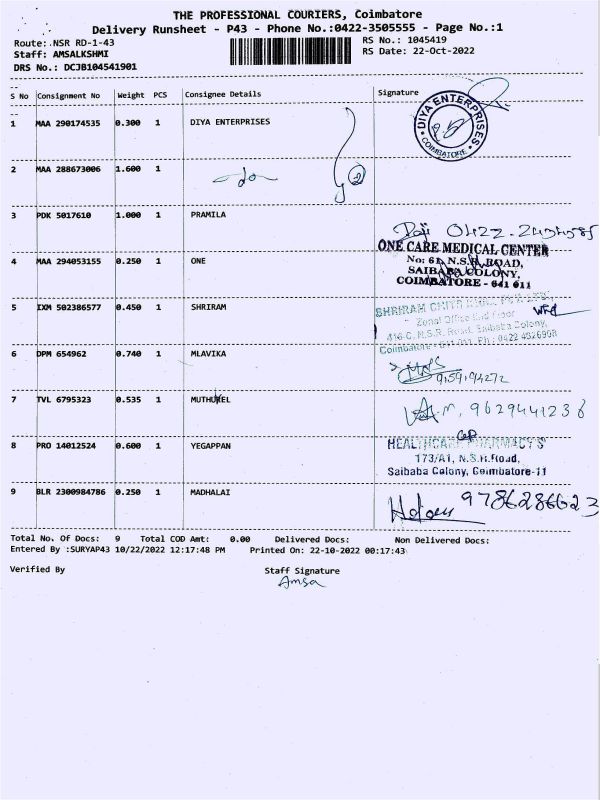 THE PROFESSIONAL COURIERS, Coimbatore
Delivery Runsheet - P43 - Phone No.:0422-3505555 - Page No.:1
Route: NSR RD-1-43 RS No.: 1045419
Staff: AMSALKSHMI RS Date: 22-Oct-2022
DRS No.: DCJB104541901
S No Consignment No Weight PCS Consignee Details Signature
1 MAA 290174535 0.300 1 DIYA ENTERPRISES
DIYA ENTERPRISES
COIMBATORE
2 MAA 288673006 1.600 1
3 PDK 5017610 1.000 1 PRAMILA
4 MAA 294053155 0.250 1 ONE
ONE CARE MEDICAL CENTER
No: 61, N.S.R. ROAD,
SAIBABA COLONY,
COIMBATORE - 641 011
5 IXM 502386577 0.450 1 SHRIRAM
Zonal Office
416-C, N.S.R. Road, Saibaba Colony,
6 DPM 654962 0.740 1 MLAVIKA
7 TVL 6795323 0.535 1
9629441236
8 PRO 14012524 0.600 1 YEGAPPAN
HEALTHCARE PHARMACY'S
173/A1, N.S.R.Road,
Saibaba Colony, Coimbatore-11
9 BLR 2300984786 0.250 1 MADHALAI
9786286623
Total No. Of Docs: 9 Total COD Amt: 0.00 Delivered Docs: Non Delivered Docs:
Entered By :SURYAP43 10/22/2022 12:17:48 PM Printed On: 22-10-2022 00:17:43
Verified By Staff Signature
Amsa